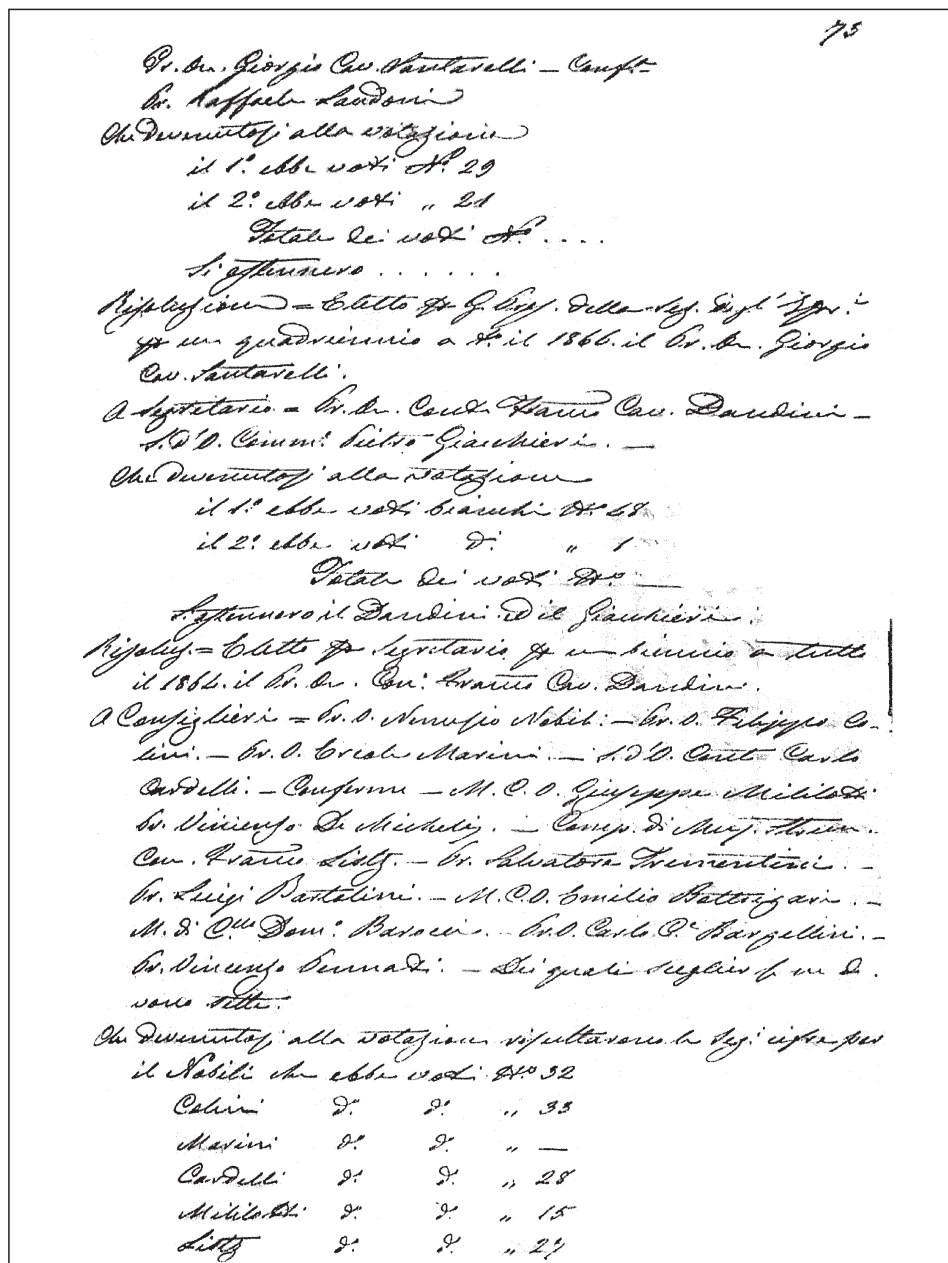 75
Pr. On. Giorgio Cav. Santarelli – Conf.ª
Pr. Raffaele Landoni
Che devenutosi alla votazione
il 1º ebbe voti Nº 29
il 2º ebbe voti „ 21
Totale dei voti Nº ....
Si astennero ......
Risoluzione = Eletto
un quadriennio a tº il 1866. il Pr. On. Giorgio
Cav. Santarelli.
A Segretario = Pr. On. Conte Franco Cav. Dandini –
S. d'O. Commº Pietro Giacchieri. –
Che devenutosi alla votazione
il 1º ebbe voti bianchi Nº 48
il 2º ebbe voti dº „ 1
Totale dei voti Nº —
Si astennero il Dandini ed il Giacchieri.
Risoluz. = Eletto Segretario un biennio a tutto
il 1864. il Pr. On. Conº Franco Cav. Dandini.
A Consiglieri = Pr. O. Nemesio Nobili. – Pr. O. Filippo Co-
lini. – Pr. O. Ercole Marini. – S. d'O. Conte Carlo
Cardelli. – Conferme – M. C. O. Giuseppe Mililotti
Pr. Vincenzo De Michelis. – Comp. di Mus.
Com. Franco Listz. – Pr. Salvatore Trementini. –
Pr. Luigi Bartolini. – M. C. O. Emilio Bottrigari. –
M. di Domº – Pr. O. Carlo Cº Bargellini. –
Pr. Vincenzo Pennadi. – Dei quali sceglier se ne de
vono sette.
Che devenutosi alla votazione risultarono le segº cifre per
il Nobili che ebbe voti Nº 32
Colini dº dº „ 33
Marini dº dº „ —
Cardelli dº dº „ 28
Mililotti dº dº „ 15
Listz dº dº „ 27